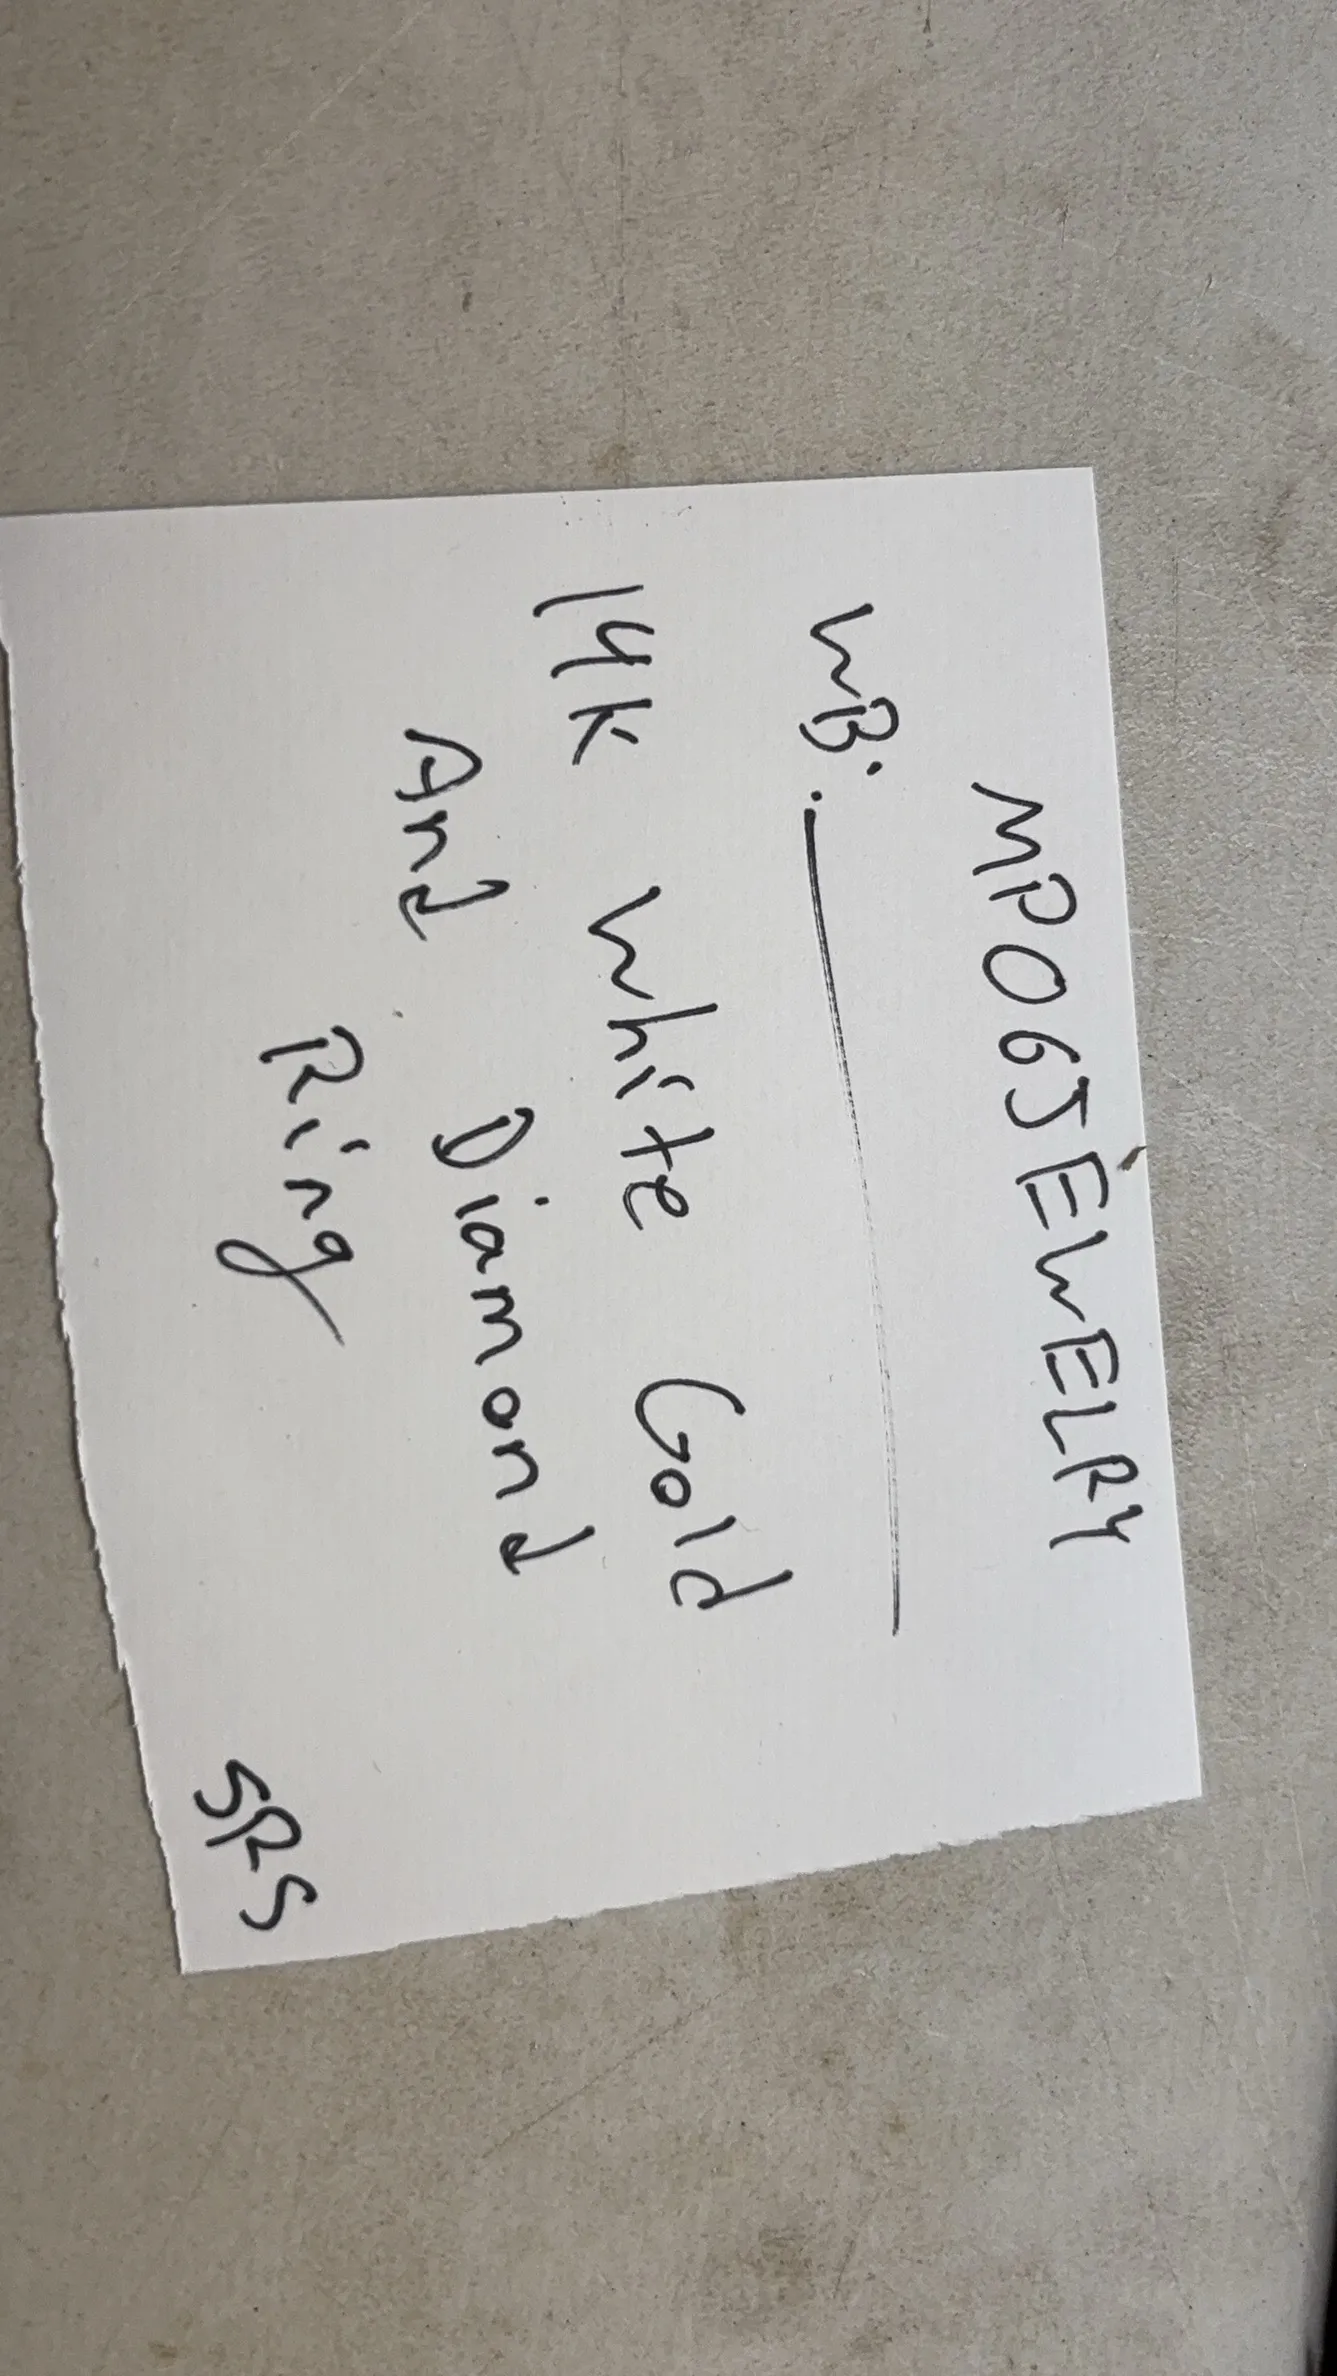 MPOGJEWELRY
WB: 
14k White Gold
And Diamond
Ring
SRS